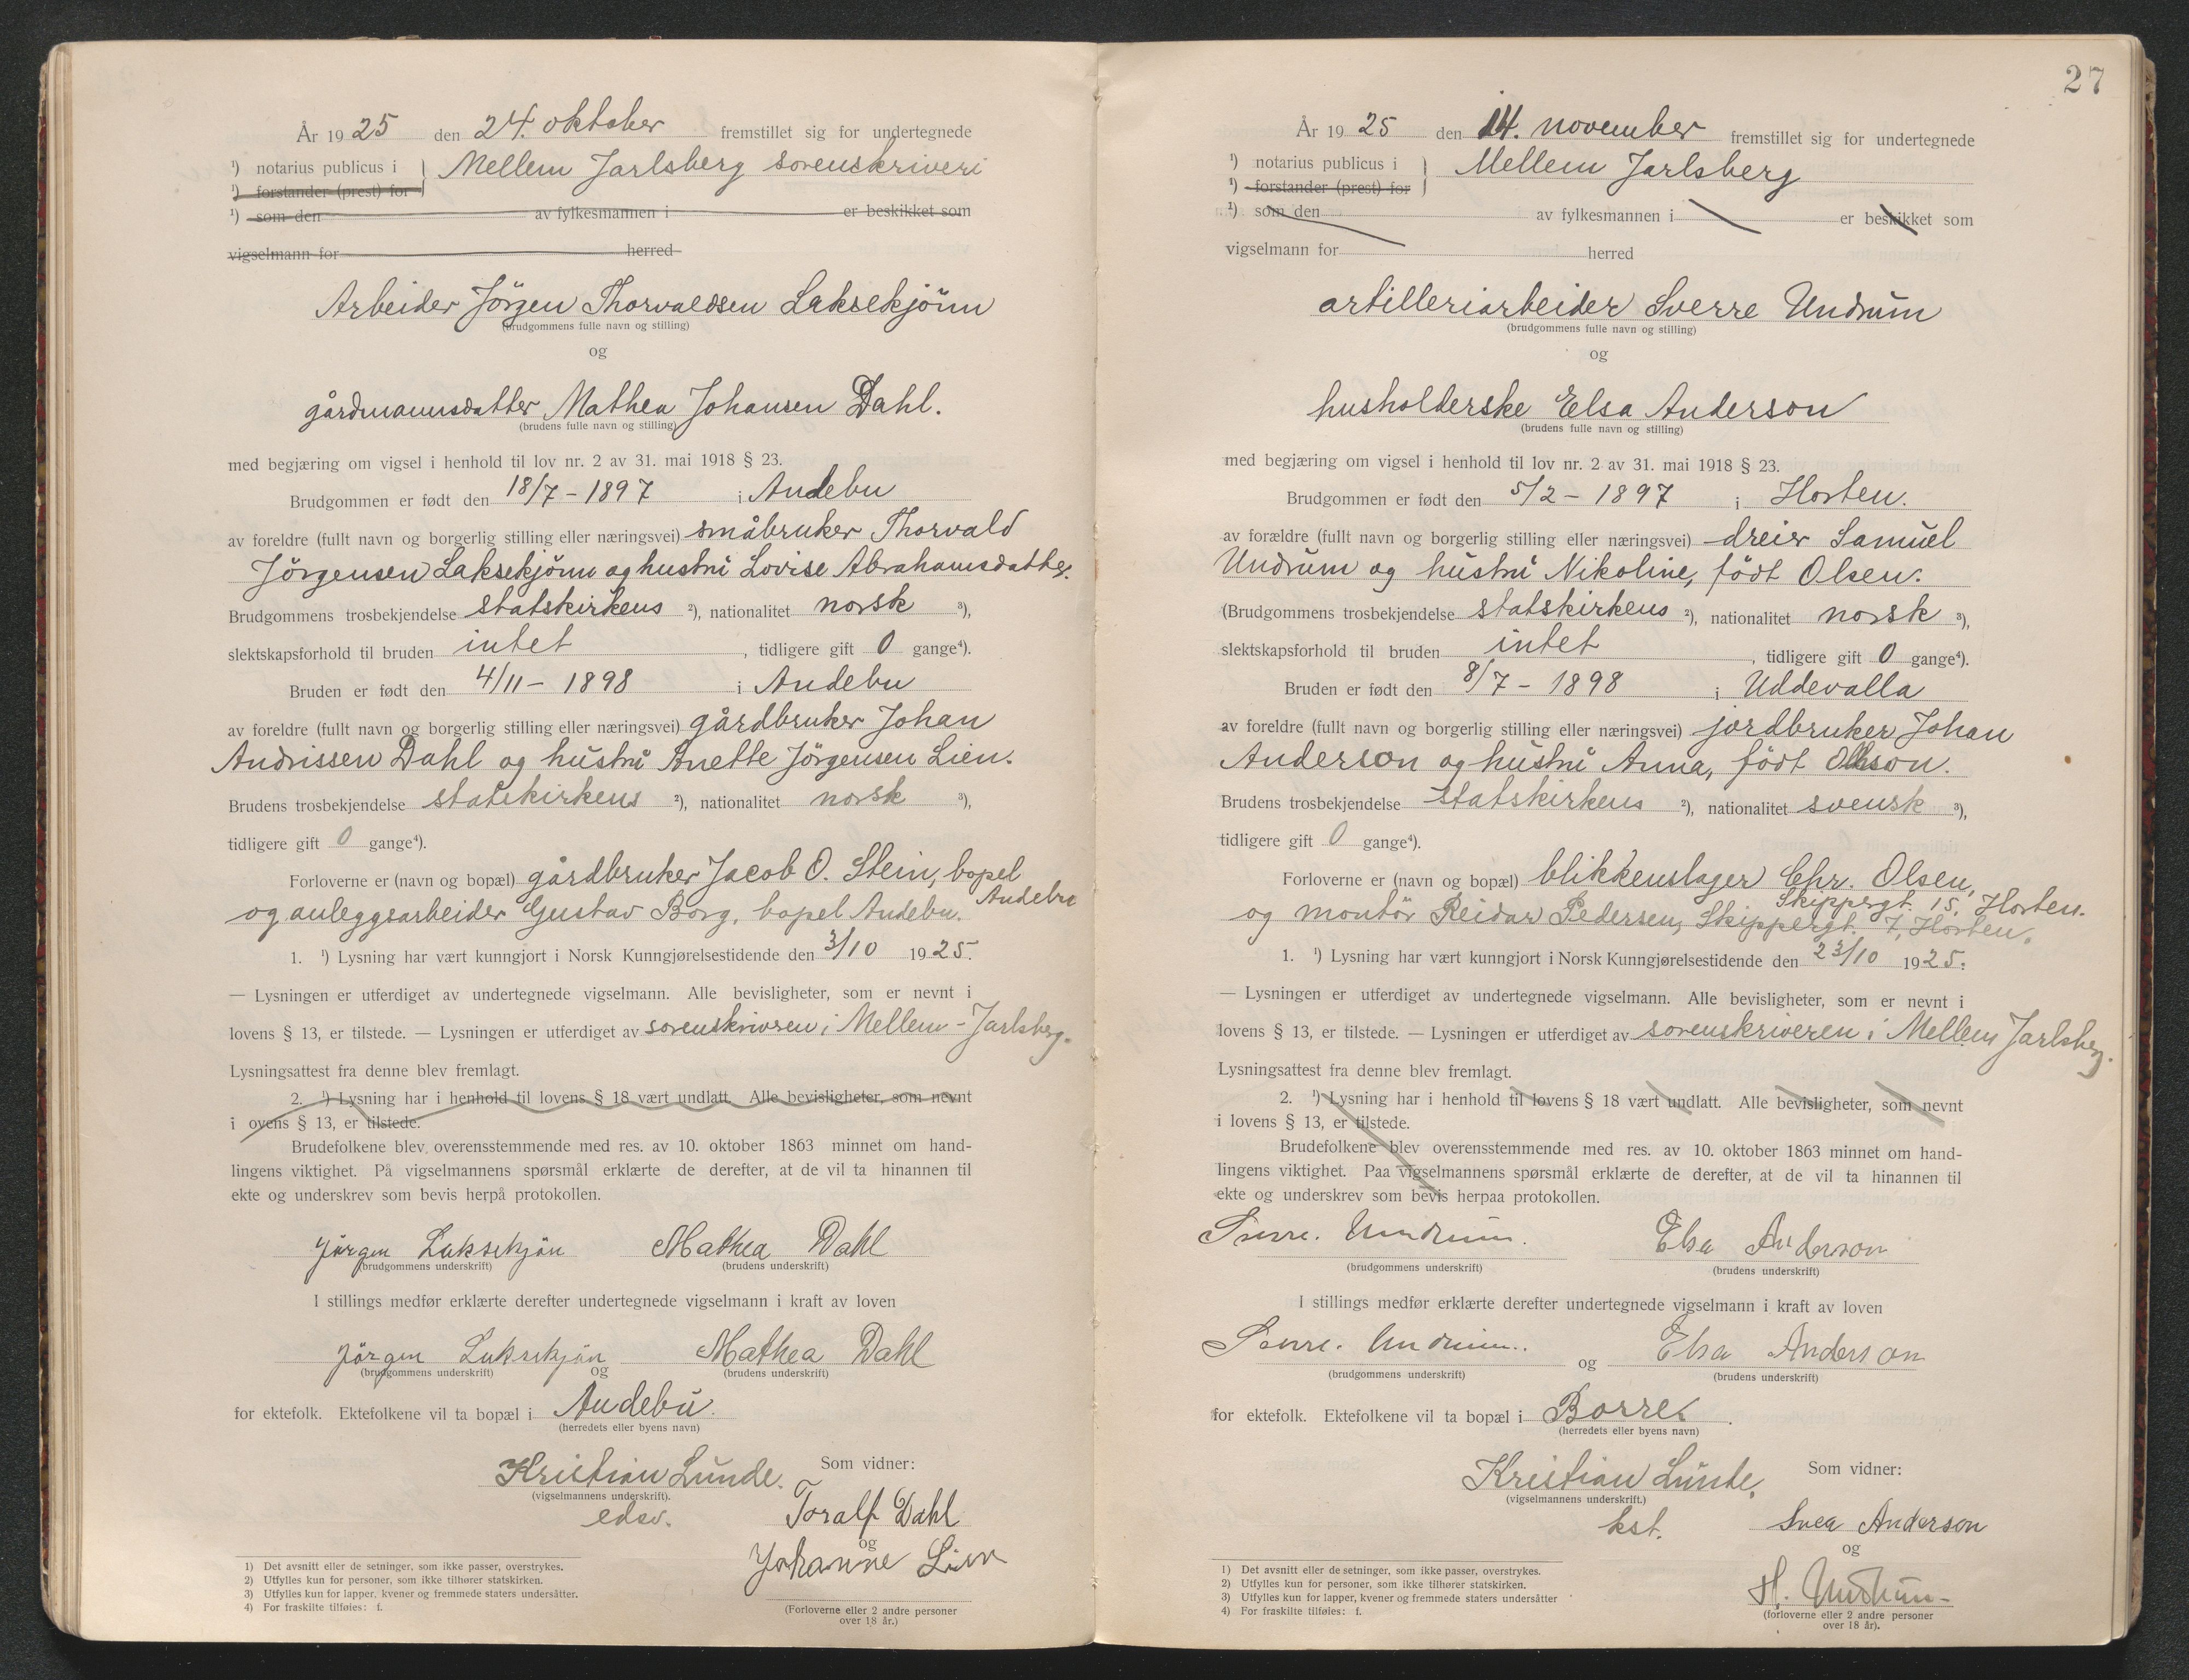 År 1925 den 24. oktober fremstillet sig for undertegnede
¹) notarius publicus i } Mellem Jarlsberg sorenskriveri
¹) forstander (prest) for
¹) som den av fylkesmannen i er beskikket som
vigselmann for herred
Arbeider Jörgen Thorvaldsen Laksekjönn
(brudgommens fulle navn og stilling)
og
gårdmannsdatter Mathea Johansen Dahl.
(brudens fulle navn og stilling)
med begjæring om vigsel i henhold til lov nr. 2 av 31. mai 1918 § 23.
Brudgommen er født den 18/7 - 1897 i Andebu
av foreldre (fullt navn og borgerlig stilling eller næringsvei) småbruker Thorvald
Jörgensen Laksekjönn og hustru Lovise Abrahamsdatter.
Brudgommens trosbekjendelse statskirkens ²), nationalitet norsk ³),
slektskapsforhold til bruden intet , tidligere gift 0 gange⁴).
Bruden er født den 4/11 - 1898 i Andebu
av foreldre (fullt navn og borgerlig stilling eller næringsvei) gårdbruker Johan
Andrissen Dahl og hustru Anette Jörgensen Lien.
Brudens trosbekjendelse statskirkens ²), nationalitet norsk ³),
tidligere gift 0 gange⁴).
Forloverne er (navn og bopæl) gårdbruker Jacob O. Stein, bopel Andebu
og anleggsarbeider Gustav Borg, bopel Andebu.
1. ¹) Lysning har vært kunngjort i Norsk Kunngjørelsestidende den 3/10 1925.
— Lysningen er utferdiget av undertegnede vigselmann. Alle bevisligheter, som er nevnt i
lovens § 13, er tilstede. — Lysningen er utferdiget av sorenskriveren i Mellem-Jarlsberg.
Lysningsattest fra denne blev fremlagt.
2. ¹) Lysning har i henhold til lovens § 18 vært undlatt. Alle bevisligheter, som nevnt
i ovens § 13, er tilstede.
Brudefolkene blev overensstemmende med res. av 10. oktober 1863 minnet om hand-
lingens viktighet. På vigselmannens spørsmål erklærte de derefter, at de vil ta hinannen til
ekte og underskrev som bevis herpå protokollen.
Jörgen Laksekjön Mathea Dahl
(brudgommens underskrift) (brudens underskrift)
I stillings medfør erklærte derefter undertegnede vigselmann i kraft av loven
Jörgen Laksekjön og Mathea Dahl
(brudgommens underskrift) (brudens underskrift)
for ektefolk. Ektefolkene vil ta bopæl i Andebu.
(herredets eller byens navn)
Kristian Lunde. Som vidner:
(vigselmannens underskrift).
edsv. Toralf Dahl
og
Johanne Lien
(Forloverne eller 2 andre personer
over 18 år.)
1) Det avsnitt eller de setninger, som ikke passer, overstrykes.
2) Utfylles kun for personer, som ikke tilhører statskirken.
3) Utfylles kun for lapper, kvener og fremmede staters undersåtter.
4) For fraskilte tilføies: f.
27
År 1925 den 14. november fremstillet sig for undertegnede
¹) notarius publicus i } Mellem Jarlsberg
¹) forstander (prest) for
¹) som den av fylkesmannen i er beskikket som
vigselmann for herred
artilleriarbeider Sverre Undrum
(brudgommens fulle navn og stilling)
og
husholderske Elsa Anderson
(brudens fulle navn og stilling)
med begjæring om vigsel i henhold til lov nr. 2 av 31. mai 1918 § 23.
Brudgommen er født den 5/2 - 1897 i Horten.
av forældre (fullt navn og borgerlig stilling eller næringsvei) dreier Samuel
Undrum og hustru Nikoline, födt Olsen.
(Brudgommens trosbekjendelse statskirkens ²), nationalitet norsk ³),
slektskapsforhold til bruden intet , tidligere gift 0 gange⁴).
Bruden er født den 8/7 - 1898 i Uddevalla
av foreldre (fullt navn og borgerlig stilling eller næringsvei) jordbruker Johan
Anderson og hustru Anna, födt Olsson.
Brudens trosbekjendelse statskirkens ²), nationalitet svensk ³),
tidligere gift 0 gange⁴).
Forloverne er (navn og bopæl) blikkenslager Chr. Olsen,
Skippergt. 15, Horten.
og montör Reidar Pedersen, Skippergt. 7, Horten.
1. ¹) Lysning har vært kunngjort i Norsk Kunngjørelsestidende den 23/10 1925.
— Lysningen er utferdiget av undertegnede vigselmann. Alle bevisligheter, som er nevnt i
lovens § 13, er tilstede. — Lysningen er utferdiget av sorenskriveren i Mellem Jarlsberg.
Lysningsattest fra denne blev fremlagt.
2. ¹) Lysning har i henhold til lovens § 18 vært undlatt. Alle bevisligheter, som nevnt
i lovens § 13, er tilstede.
Brudefolkene blev overensstemmende med res. av 10. oktober 1863 minnet om hand-
lingens viktighet. Paa vigselmannens spørsmål erklærte de derefter, at de vil ta hinannen til
ekte og underskrev som bevis herpaa protokollen.
Sverre. Undrum. Elsa Anderson
(brudgommens underskrift) (brudens underskrift)
I stillings medfør erklærte derefter undertegnede vigselmann i kraft av loven
Sverre. Undrum. og Elsa Anderson
(brudgommens underskrift) (brudens underskrift)
for ektefolk. Ektefolkene vil ta bopæl i Borre.
(herredets eller byens navn)
Kristian Lunde, Som vidner:
(vigselmannens underskrift.)
kst. Svea Anderson
og
H. Undrum
(forloverne eller 2 andre personer
over 18 år).
1) Det avsnitt eller de setninger, som ikke passer, overstrykes.
2) Utfylles kun for personer, som ikke tilhører statskirken.
3) Utfylles kun for lapper, kvener og fremmede staters undersåtter
4) For fraskilte tilføies: f.